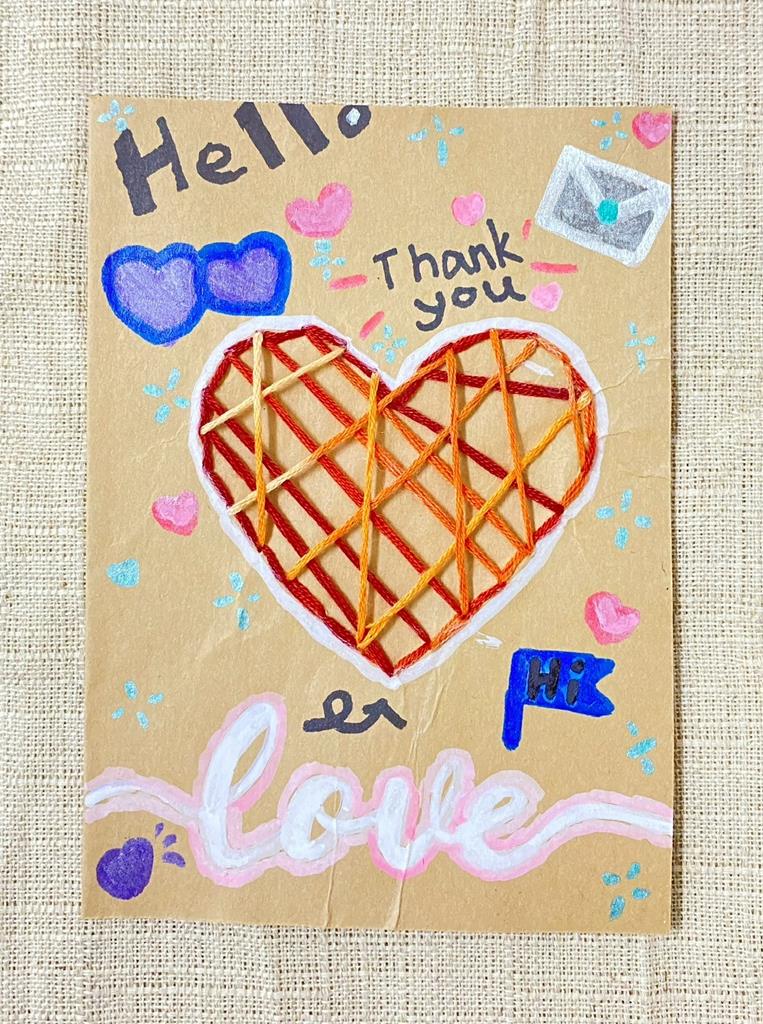 Hello
Thank
you
Hi
love